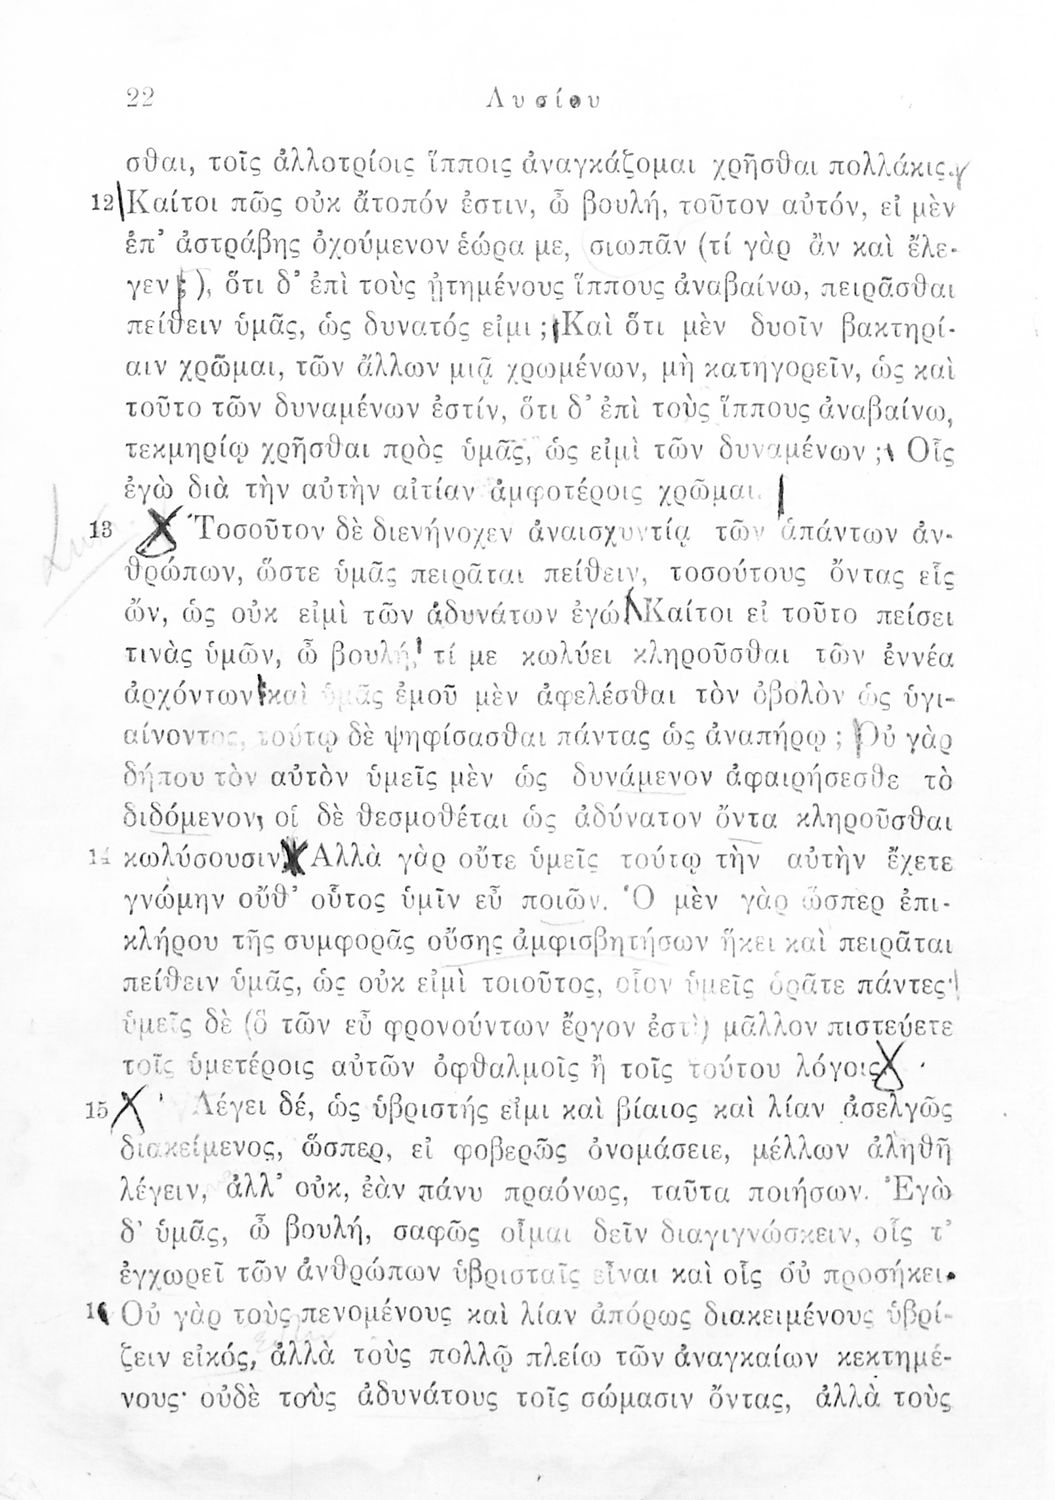 22
Λυσίου
σθαι, τοῖς ἀλλοτρίοις ἵπποις ἀναγκάζομαι χρῆσθαι πολλάκις.
12 Καίτοι πῶς οὐκ ἄτοπόν ἐστιν, ὦ βουλή, τοῦτον αὐτόν, εἰ μὲν
ἐπ’ ἀστράβης ὀχούμενον ἑώρα με, σιωπᾶν (τί γὰρ ἂν καὶ ἔλε-
γεν ; ), ὅτι δ’ ἐπὶ τοὺς ᾐτημένους ἵππους ἀναβαίνω, πειρᾶσθαι
πείθειν ὑμᾶς, ὡς δυνατός εἰμι ; Καὶ ὅτι μὲν δυοῖν βακτηρί-
αιν χρῶμαι, τῶν ἄλλων μιᾷ χρωμένων, μὴ κατηγορεῖν, ὡς καὶ
τοῦτο τῶν δυναμένων ἐστίν, ὅτι δ’ ἐπὶ τοὺς ἵππους ἀναβαίνω,
τεκμηρίῳ χρῆσθαι πρὸς ὑμᾶς, ὡς εἰμὶ τῶν δυναμένων ; Οἷς
ἐγὼ διὰ τὴν αὐτὴν αἰτίαν ἀμφοτέροις χρῶμαι.
13 Τοσοῦτον δὲ διενήνοχεν ἀναισχυντίᾳ τῶν ἁπάντων ἀν-
θρώπων, ὥστε ὑμᾶς πειρᾶται πείθειν, τοσούτους ὄντας εἷς
ὤν, ὡς οὐκ εἰμὶ τῶν ἀδυνάτων ἐγώ. Καίτοι εἰ τοῦτο πείσει
τινὰς ὑμῶν, ὦ βουλή, τί με κωλύει κληροῦσθαι τῶν ἐννέα
ἀρχόντων καὶ ὑμᾶς ἐμοῦ μὲν ἀφελέσθαι τὸν ὀβολὸν ὡς ὑγι-
αίνοντος, τούτῳ δὲ ψηφίσασθαι πάντας ὡς ἀναπήρῳ ; Οὐ γὰρ
δήπου τὸν αὐτὸν ὑμεῖς μὲν ὡς δυνάμενον ἀφαιρήσεσθε τὸ
διδόμενον, οἱ δὲ θεσμοθέται ὡς ἀδύνατον ὄντα κληροῦσθαι
14 κωλύσουσιν. Ἀλλὰ γὰρ οὔτε ὑμεῖς τούτῳ τὴν αὐτὴν ἔχετε
γνώμην οὔθ’ οὗτος ὑμῖν εὖ ποιῶν. Ὁ μὲν γὰρ ὥσπερ ἐπι-
κλήρου τῆς συμφορᾶς οὔσης ἀμφισβητήσων ἥκει καὶ πειρᾶται
πείθειν ὑμᾶς, ὡς οὐκ εἰμὶ τοιοῦτος, οἷον ὑμεῖς ὁρᾶτε πάντες·
ὑμεῖς δὲ (ὃ τῶν εὖ φρονούντων ἔργον ἐστὶ) μᾶλλον πιστεύετε
τοῖς ὑμετέροις αὐτῶν ὀφθαλμοῖς ἢ τοῖς τούτου λόγοις
15 Λέγει δέ, ὡς ὑβριστής εἰμι καὶ βίαιος καὶ λίαν ἀσελγῶς
διακείμενος, ὥσπερ, εἰ φοβερῶς ὀνομάσειε, μέλλων ἀληθῆ
λέγειν, ἀλλ’ οὐκ, ἐὰν πάνυ πραόνως, ταῦτα ποιήσων. Ἐγὼ
δ’ ὑμᾶς, ὦ βουλή, σαφῶς οἶμαι δεῖν διαγιγνώσκειν, οἷς τ’
ἐγχωρεῖ τῶν ἀνθρώπων ὑβρισταῖς εἶναι καὶ οἷς οὐ προσήκει.
16 Οὐ γὰρ τοὺς πενομένους καὶ λίαν ἀπόρως διακειμένους ὑβρί-
ζειν εἰκός, ἀλλὰ τοὺς πολλῷ πλείω τῶν ἀναγκαίων κεκτημέ-
νους· οὐδὲ τοὺς ἀδυνάτους τοῖς σώμασιν ὄντας, ἀλλὰ τοὺς